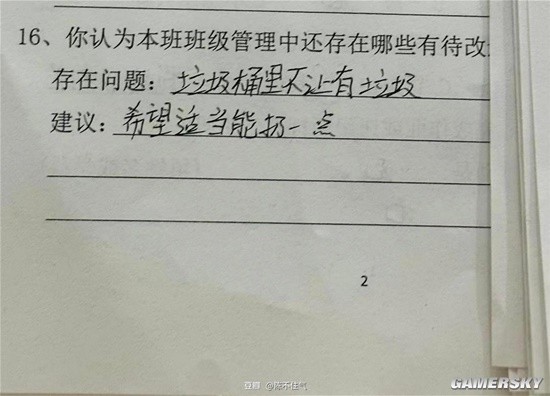 16、你认为本班班级管理中还存在哪些有待改
存在问题：垃圾桶里不让有垃圾
建议：希望适当能扔一点
2
豆瓣 @陈不住气
GAMERSKY